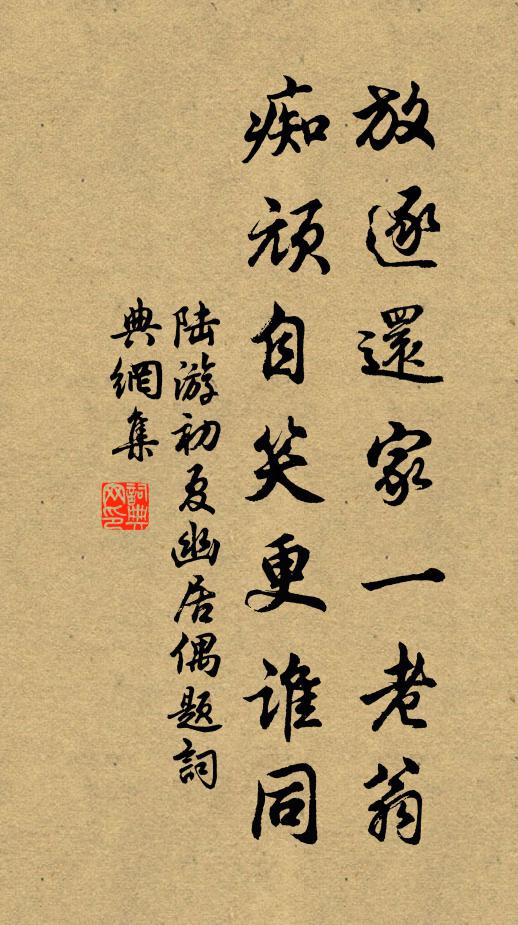 放逐還家一老翁
痴頑自笑更誰同
陆游初夏幽居偶题詞
典網集
詞典
网印